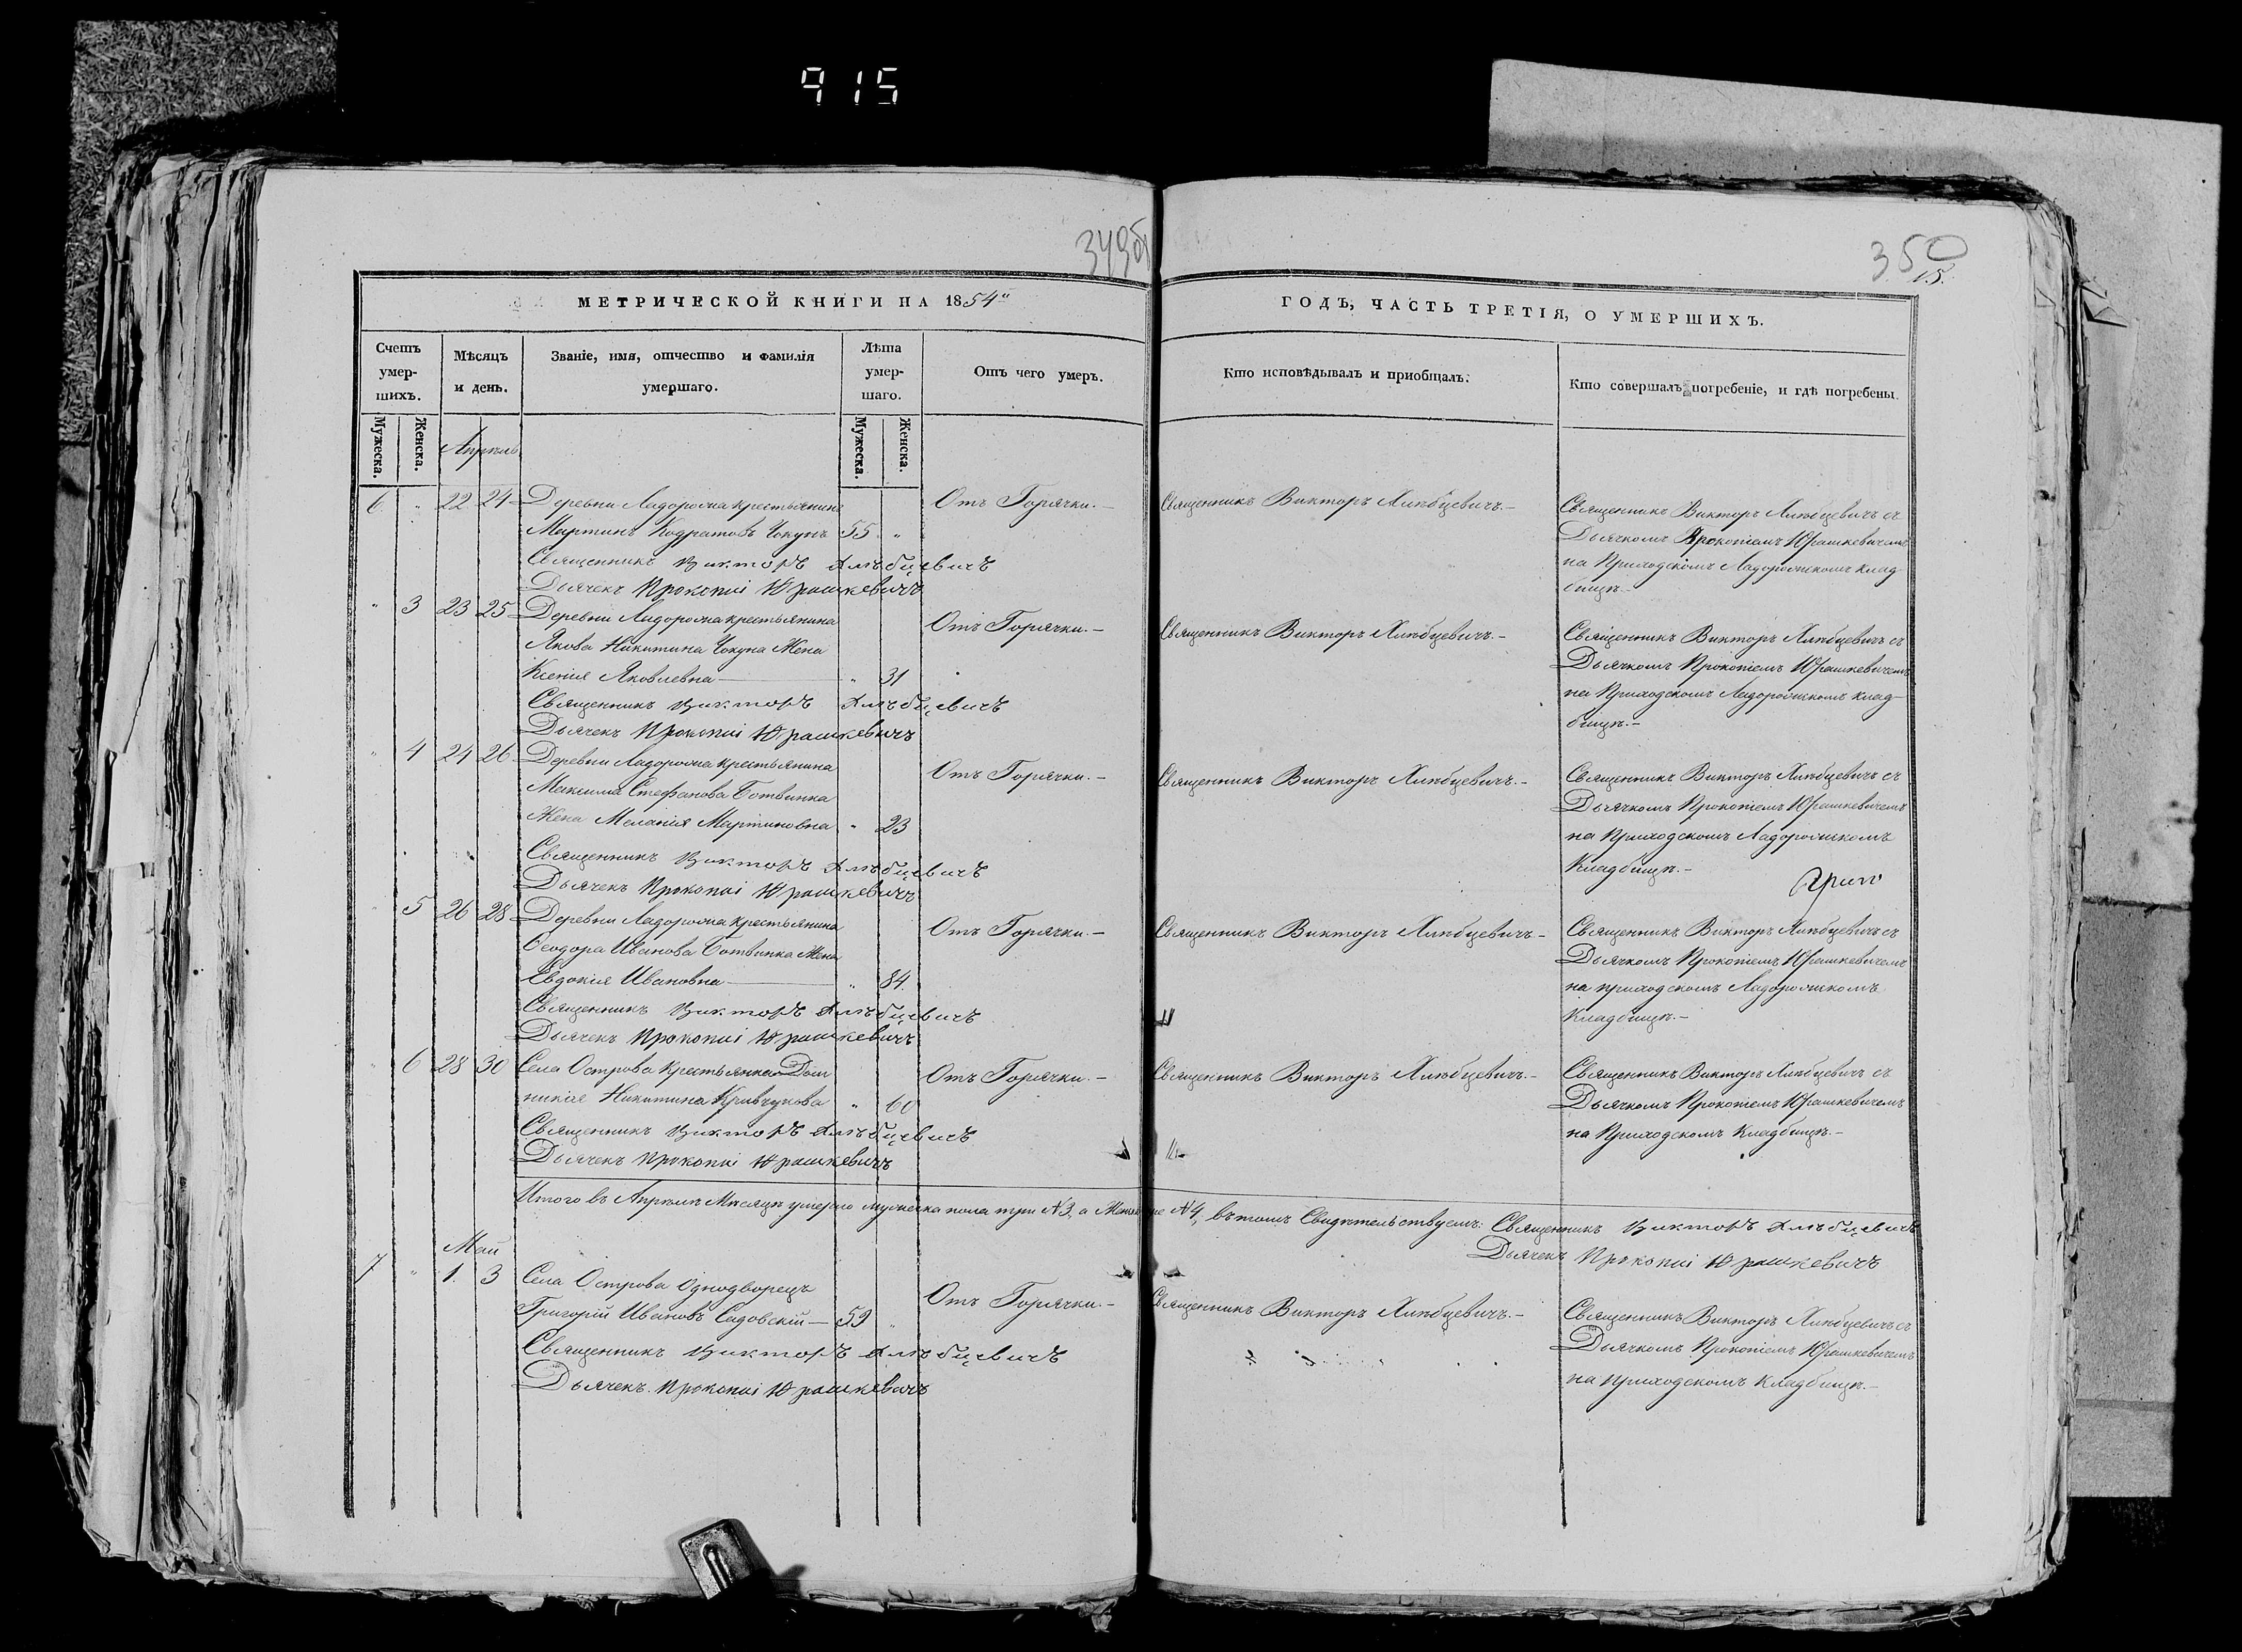 915
349об
350
15.
МЕТРИЧЕСКОЙ КНИГИ НА 1854й
ГОДЪ, ЧАСТЬ ТРЕТІЯ, О УМЕРШИХЪ.
Счетъ умер-шихъ.
Мѣсяцъ и день.
Званіе, имя, отчество и фамилія умершаго.
Лѣта умер-шаго.
Отъ чего умеръ.
Кто исповѣдывалъ и пріобщалъ.
Кто совершалъ погребеніе, и гдѣ погребены.
Мужеска. Женска.
Мужеска. Женска.
Апрѣль
6 " 22 24 Деревни Лядорожа крестьянинъ
Мартинъ Кодратовъ Чокунъ 55 "
Священникъ Викторъ Хлѣбцевичъ
Дьячекъ Прокопій Юрашкевичъ
Отъ Горячки.—
Священникъ Викторъ Хлѣбцевичъ.—
Священникъ Викторъ Хлѣбцевичъ съ
Дьячкомъ Прокопіемъ Юрашкевичемъ
на Приходскомъ клад-
бищѣ.—
" 3 23 25 Деревни крестьянина
Якова Никитина Чокуна Жена
Ксенія Яковлевна — " 31
Священникъ Викторъ Хлѣбцевичъ
Дьячекъ Прокопій Юрашкевичъ
Отъ Горячки.—
Священникъ Викторъ Хлѣбцевичъ.—
Священникъ Викторъ Хлѣбцевичъ съ
Дьячкомъ Прокопіемъ Юрашкевичемъ
на Приходскомъ клад-
бищѣ.—
" 4 24 26 Деревни крестьянина
Максима Стефанова Ботвинка
Жена Меланія Мартиновна " 23
Священникъ Викторъ Хлѣбцевичъ
Дьячекъ Прокопій Юрашкевичъ
Отъ Горячки.—
Священникъ Викторъ Хлѣбцевичъ.—
Священникъ Викторъ Хлѣбцевичъ съ
Дьячкомъ Прокопіемъ Юрашкевичемъ
на Приходскомъ
Кладбищѣ.—
" 5 26 28 Деревни крестьянина
Ѳеодора Иванова Ботвинка Жена
Евдокія Ивановна — " 84.
Священникъ Викторъ Хлѣбцевичъ
Дьячекъ Прокопій Юрашкевичъ
Отъ Горячки.—
Священникъ Викторъ Хлѣбцевичъ.—
Священникъ Викторъ Хлѣбцевичъ съ
Дьячкомъ Прокопіемъ Юрашкевичемъ
на приходскомъ
Кладбищѣ.—
" 6 28 30 Села Острова Крестьянка Дом
никія Никитина Кривчукова " 60
Священникъ Викторъ Хлѣбцевичъ
Дьячекъ Прокопій Юрашкевичъ
Отъ Горячки.—
Священникъ Викторъ Хлѣбцевичъ.—
Священникъ Викторъ Хлѣбцевичъ съ
Дьячкомъ Прокопіемъ Юрашкевичемъ
на Приходскомъ Кладбищѣ.—
Итого въ Апрѣлѣ Мѣсяцѣ умерло мужеска пола три №3, а №4, въ томъ Свидѣтельствуемъ: Священникъ Викторъ Хлѣбцевичъ
Дьячекъ Прокопій Юрашкевичъ
Май
7 " 1. 3 Села Острова Однодворецъ
Григорій Ивановъ Садовскій — 59 "
Священникъ Викторъ Хлѣбцевичъ
Дьячекъ Прокопій Юрашкевичъ
Отъ Горячки.—
Священникъ Викторъ Хлѣбцевичъ.—
Священникъ Викторъ Хлѣбцевичъ съ
Дьячкомъ Прокопіемъ Юрашкевичемъ
на Приходскомъ Кладбищѣ.—